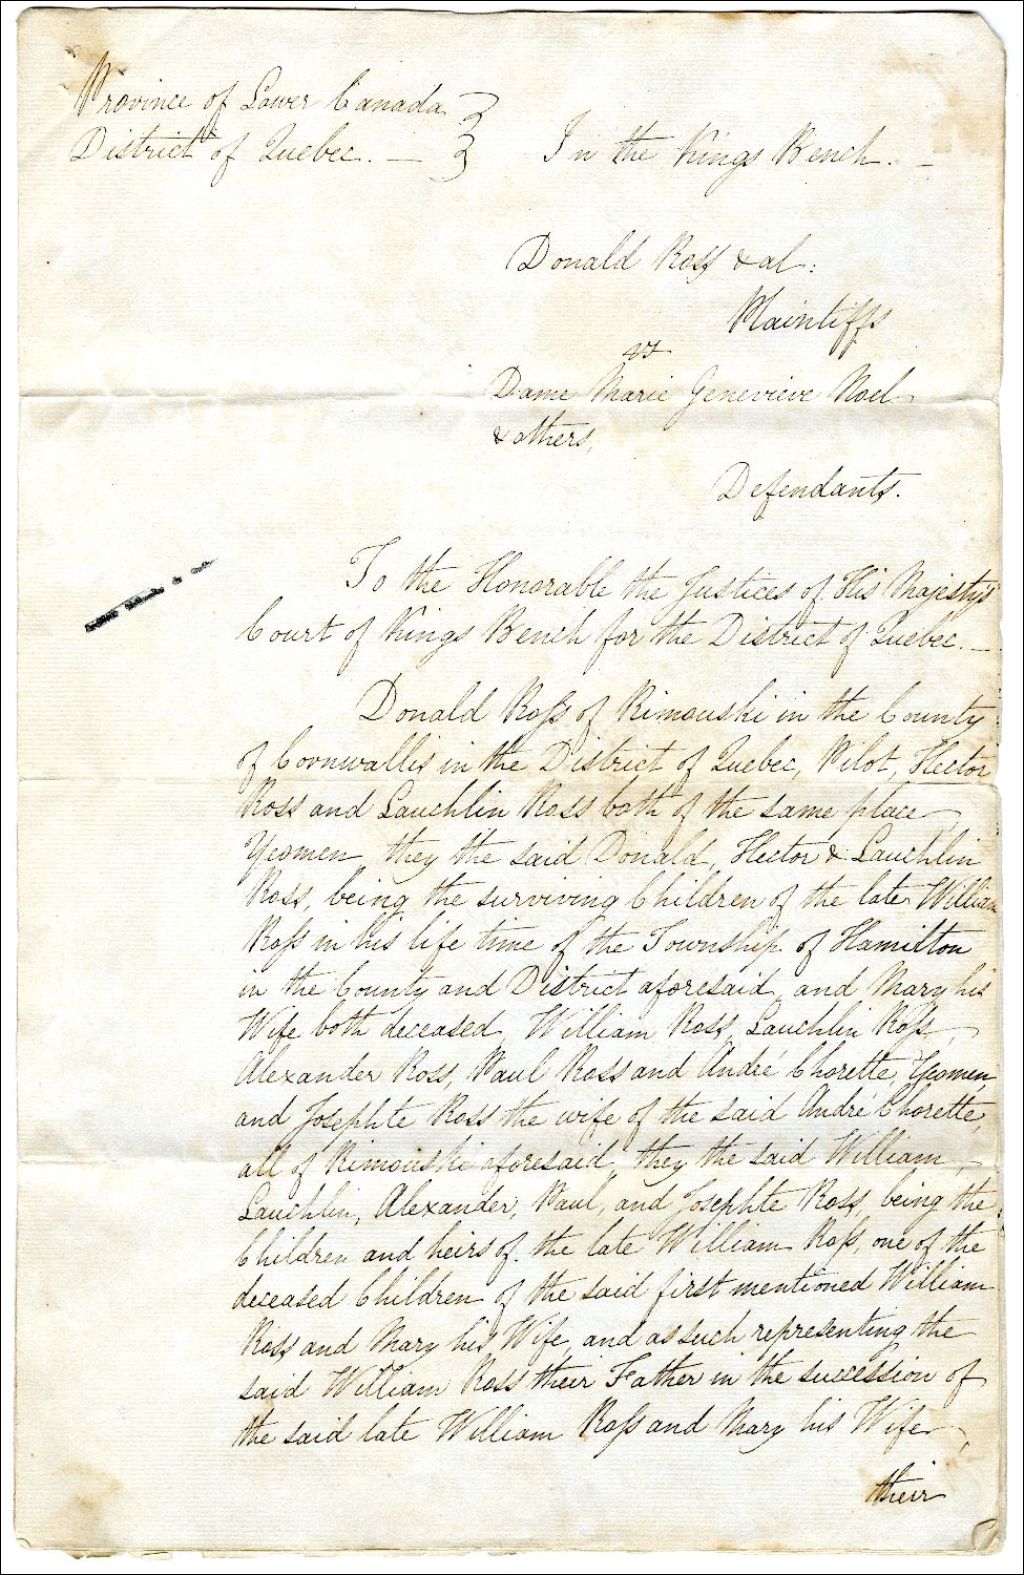 Province of Lower Canada
District of Quebec. —
In the Kings Bench. —
Donald Ross & al:
Plaintiffs
vs
Dame Marie Genevieve Noel
& others,
Defendants.
To the Honorable the Justices of His Majesty's
Court of Kings Bench for the District of Quebec. —
Donald Ross of Rimouski in the County
of Cornwallis in the District of Quebec, Pilot, Hector
Ross and Lauchlin Ross both of the same place
Yeomen, they the said Donald, Hector & Lauchlin
Ross, being the surviving Children of the late William
Ross in his life time of the Township of Hamilton
in the County and District aforesaid, and Mary his
Wife both deceased, William Ross, Lauchlin Ross,
Alexander Ross, Paul Ross and André Chorette, Yeomen,
and Josephte Ross the wife of the said André Chorette,
all of Rimouski aforesaid, they the said William,
Lauchlin, Alexander, Paul, and Josephte Ross, being the
Children and heirs of the late William Ross, one of the
deceased Children of the said first mentioned William
Ross and Mary his Wife, and as such representing the
said William Ross their Father in the succession of
the said late William Ross and Mary his Wife,
their